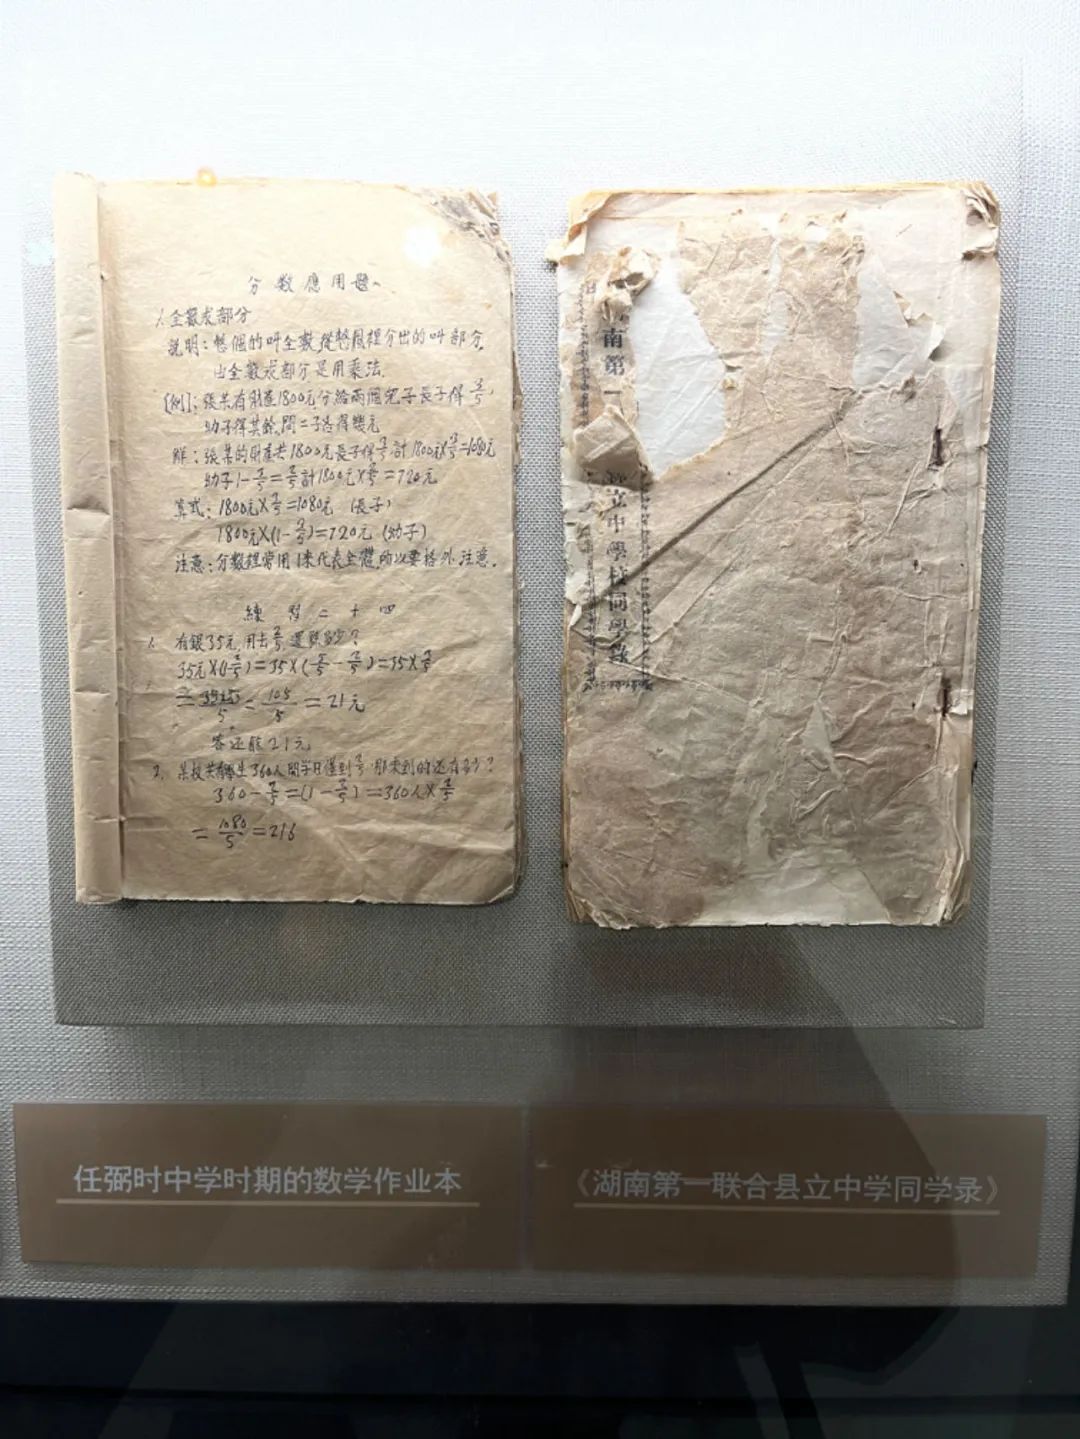 分数應用題
1.全数求部分
說明：整個的叫全数從整個裡分出的叫部分.
由全数求部分是用乘法.
〔例〕：張某有財產1800元分給兩個兒子長子得3/5
幼子得其餘,問二子各得幾元
解：張某的財產共1800元長子得3/5計1800元×3/5=1080元
幼子1-3/5=2/5計1800元×2/5=720元
算式：1800元×3/5=1080元（長子）
1800元×(1-3/5)=720元（幼子）
注意：分数裡常用1來代表全體所以要格外注意.
練習二十四
1. 有銀35元,用去2/5,還餘多少？
35元×(1-2/5)=35×(5/5-2/5)=35×3/5
=35×3/5=105/5=21元
答还餘21元
2. 某校共有學生360人 到的还有多少？
360-2/5=(1-2/5)=360人×3/5
=1080/5=216
南第一
立中學校同學錄
任弼时中学时期的数学作业本
《湖南第一联合县立中学同学录》